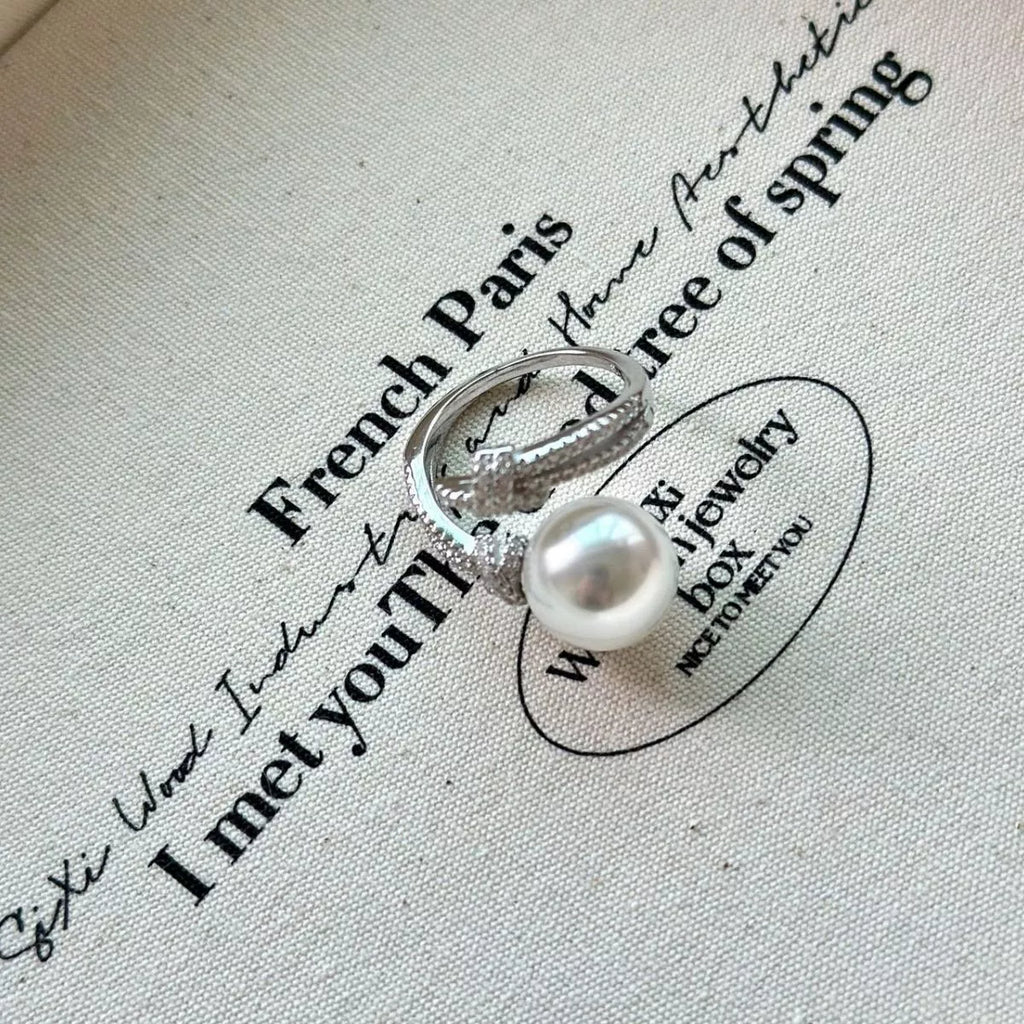 French Paris
QiXi Wood Industry and Home Aesthetic
I met you The tree of spring
jewelry
box
NICE TO MEET YOU